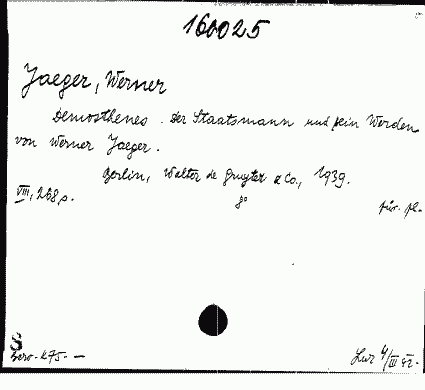 160025
Jaeger, Werner
Demosthenes. Der Staatsmann und sein Werden
von Werner Jaeger.
Berlin, Walter de Gruyter & Co., 1939.
VIII, 268 p. 8°
S